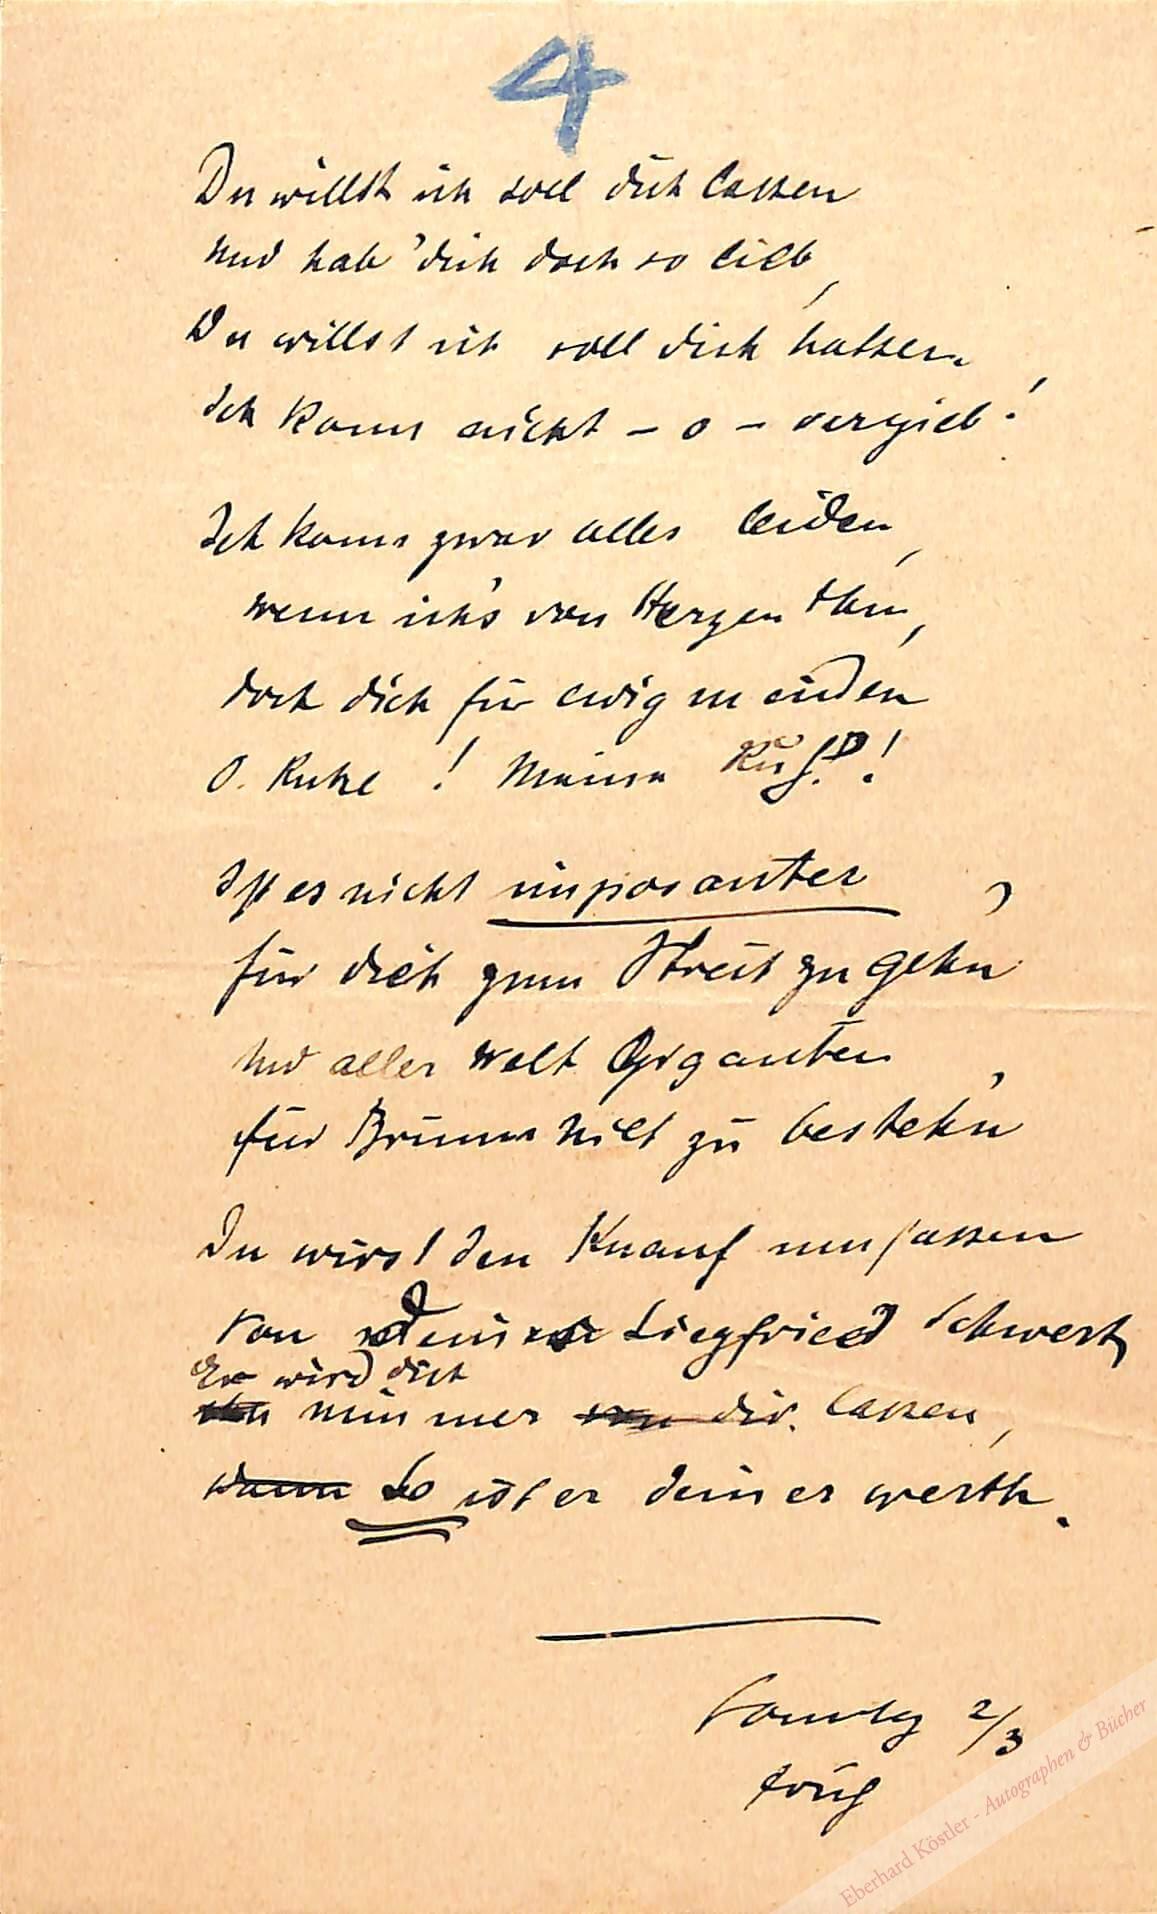 4
Du willst ich soll dich lassen
und hab' dich doch so lieb,
Du willst ich soll dich hassen
Ich kann nicht – o – vergieb!
Ich kann zwar alles leiden,
wenn ich's von Herzen thu,
doch dich für ewig meiden
O. Ruhe! Meine Ruh!
Ist es nicht imposanter,
für dich zum Streit zu gehn
und aller Welt Giganten
für Brunnhilt zu bestehn,
Du wirst den Knauf umfassen
von Deinem Siegfried Schwert,
Er wird dich
nimmer von dir. lassen,
dann So ist er deiner werth.
Sonntag 2/3
früh
Eberhard Köstler - Autographen & Bücher